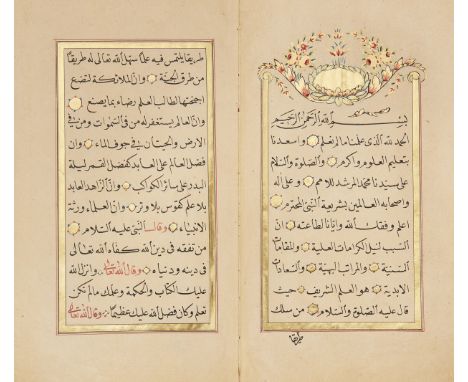 بسم الله الرحمن الرحيم
الحمد لله الذى علمنا ما لم نعلم واسعدنا
بتعليم العلوم واكرم والصلوة والسلام
على سيدنا محمد المرشد للامم وعلى اله
واصحابه العالمين بشريعة النبى المحترم
اعلم وفقك الله وايانا لطاعته ان
السبب لنيل الكرامات العلية والمقامات
السنية والمراتب البهية والسعادات
الابدية هو العلم الشريف حيث
قال عليه الصلوة والسلام من سلك
طريقا
طريقا يلتمس فيه علما سهل الله تعالى له طريقا
من طرق الجنة وان الملائكة لتضع
اجنحتها لطالب العلم رضاء بما يصنع
وان العالم يستغفر له من فى السموات ومن فى
الارض والحيتان فى جوف الماء وان
فضل العالم على العابد كفضل القمر ليلة
البدر على سائر الكواكب وان الزاهد العابد
بلا علم كقوس بلا وتر وان العلماء ورثة
الانبياء وقال النبى عليه السلام
من تفقه فى دين الله كفاه الله تعالى
فى دينه ودنياه وقال الله تعالى وانزل الله
عليك الكتاب والحكمة وعلمك ما لم تكن
تعلم وكان فضل الله عليك عظيما وقال الله تعالى